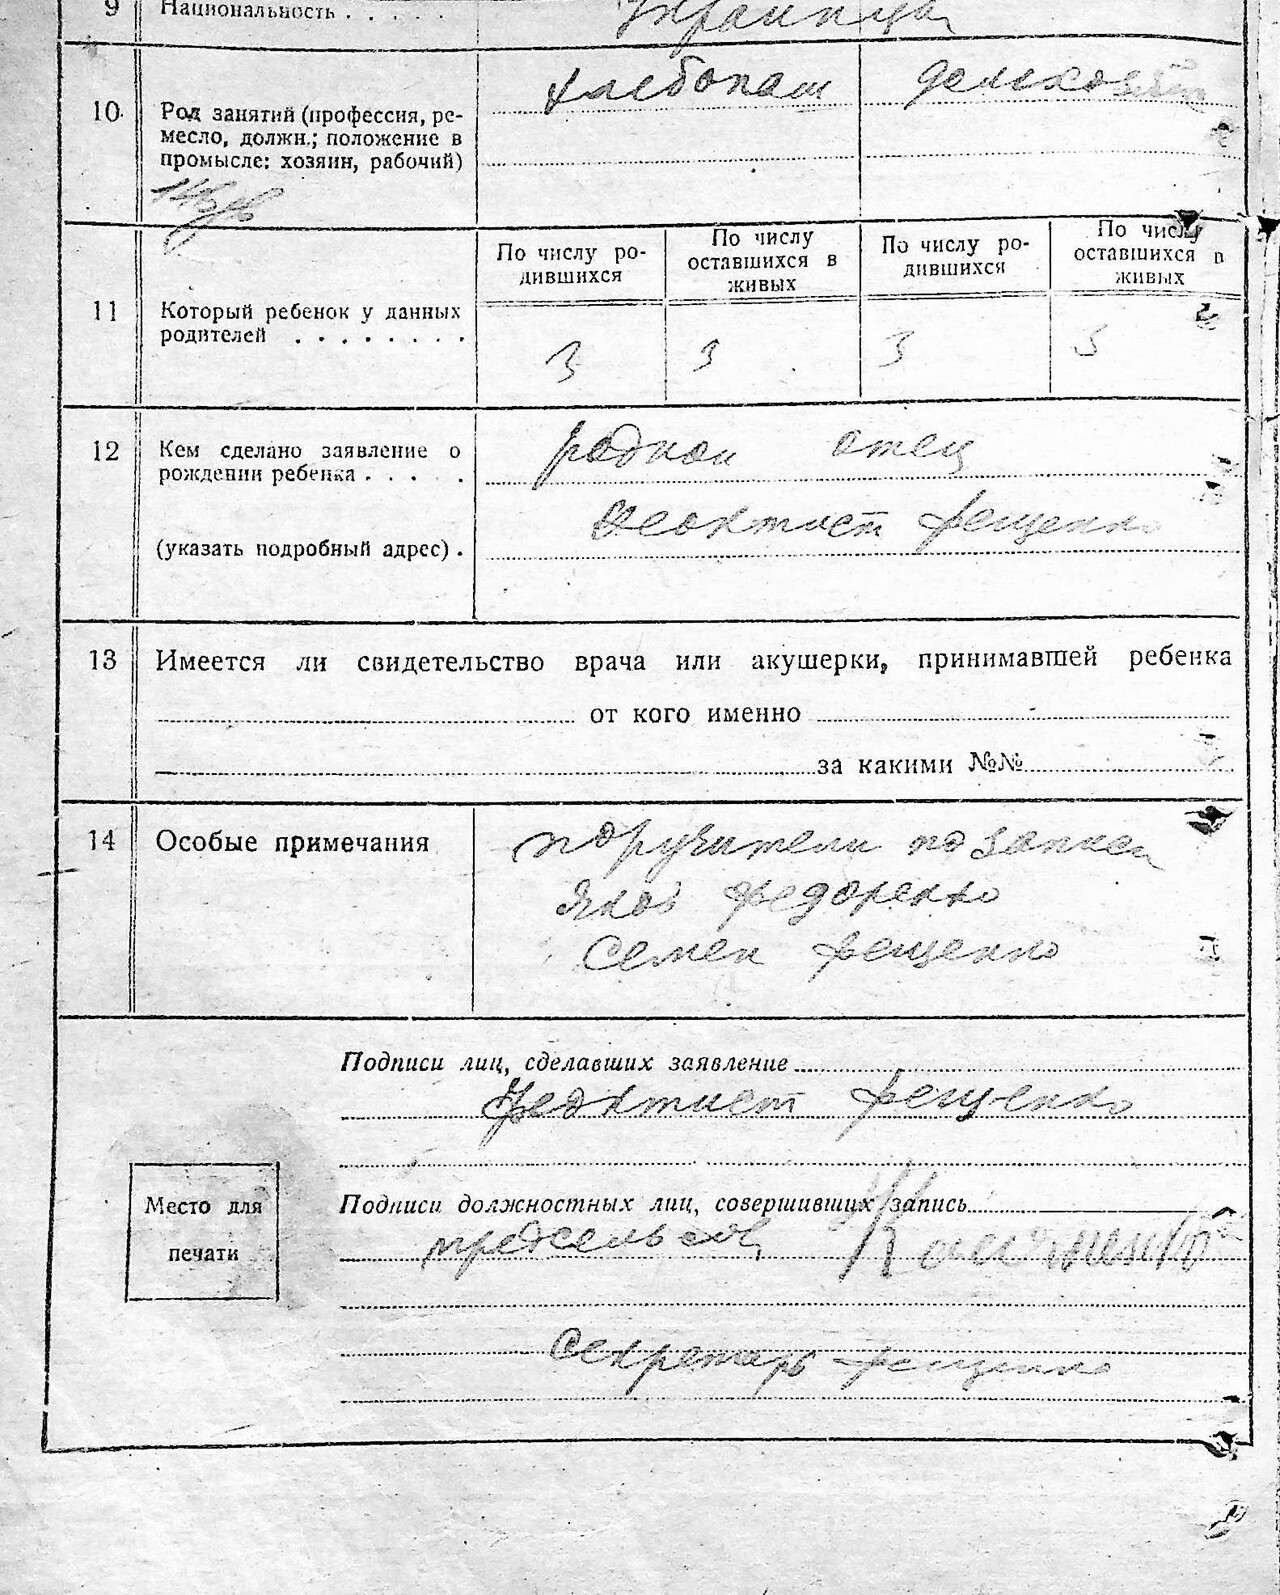 9 Национальность . . . . . Украинцы
10 Род занятий (профессия, ре-
месло, должн.; положение в
промысле: хозяин, рабочий)
хлебопаш
11 Который ребенок у данных
родителей . . . . . . . .
По числу ро-
дившихся
По числу
оставшихся в
живых
По числу ро-
дившихся
По числу
оставшихся в
живых
3 3 3 3
12 Кем сделано заявление о
рождении ребенка . . . . .
(указать подробный адрес) .
родной отец
Феоктист Фещенко
13 Имеется ли свидетельство врача или акушерки, принимавшей ребенка
от кого именно
за какими №№
14 Особые примечания
поручители по записи
Яков Федоренко
Семен Фещенко
Подписи лиц, сделавших заявление
Феоктист Фещенко
Место для
печати
Подписи должностных лиц, совершивших запись
предсельсов
Секретарь Фещенко